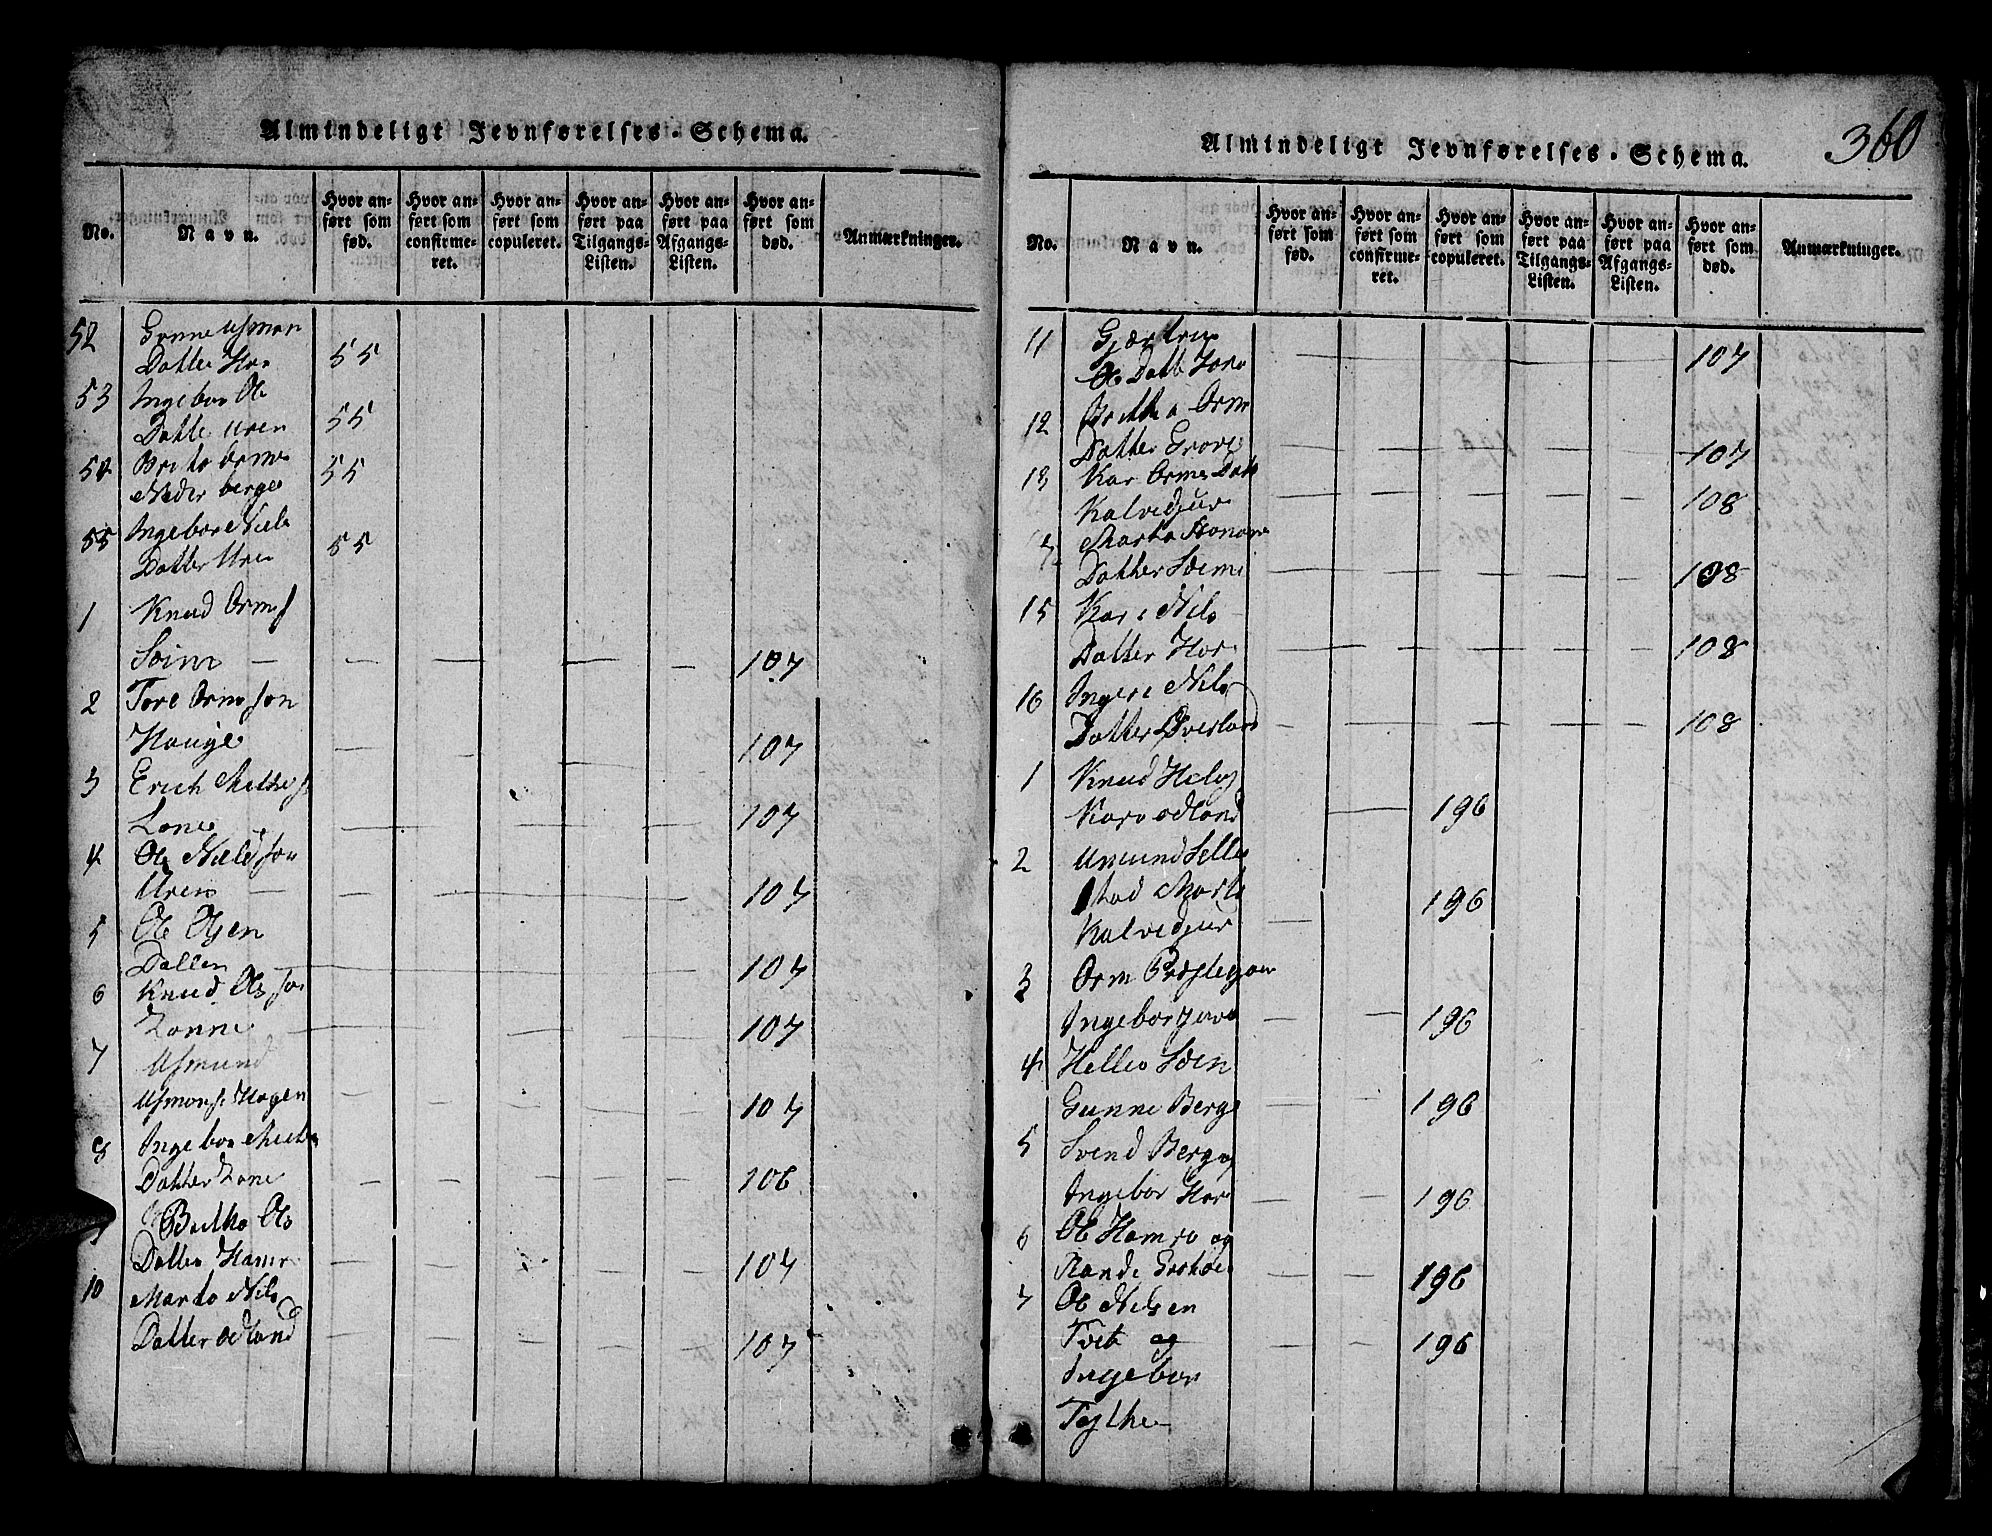 Almindeligt Jevnførelses-Schema.
No. Navn. Hvor anført som fød. Hvor anført som confirmeret. Hvor anført som copuleret. Hvor anført paa Tilgangs-Listen. Hvor anført paa Afgangs-Listen. Hvor anført som død. Anmærkninger.
52 Gunne Asmon
Datter Hor 55
53 Ingebor Ole
Datte Uren 55
54 Brita Orms
Nederberge 55
55 Ingebor Niels
Datter Uren 55
1 Knud Orms
Soim 107
2 Tore Ormsson
Hauge 107
3 Erich
Lone 107
4 Ole Nielsson
Uren 107
5 Ole Olsen
Dallen 107
6 Knud Ols son
Lonne 107
7 Asmund
Asmons Hagen 107
8 Ingebor
Datter Lone 106
Britha Ols
Datter Hamr 107
10 Marta Nils
Datter Odland 107
Almindeligt Jevnførelses-Schema. 360
No. Navn. Hvor anført som fød. Hvor anført som confirmeret. Hvor anført som copuleret. Hvor anført paa Tilgangs-Listen. Hvor anført paa Afgangs-Listen. Hvor anført som død. Anmærkninger.
11 Gjærtru
Ole Datte 107
12 Britha Orm
Datter Grove 107
13 Kar Orms Datt
Kalvedjur 108
Marta
Datter Soime 108
15 Kari Nils
Datter Hor 108
16 Ingeri Nils
Datter Øverland 108
1 Knud Helg
Kar Odland 196
2 Amund Selle
stad Marte 196
Kalvedjur
3 Orm Præstegaar
Ingebor 196
4 Helleo Soen
Gunne Berge 196
5 Svend Berg og
Ingebor Hor 196
6 Ole Hamre og
Rande 196
7 Ole Nilsen
Tveit og 196
Ingebor